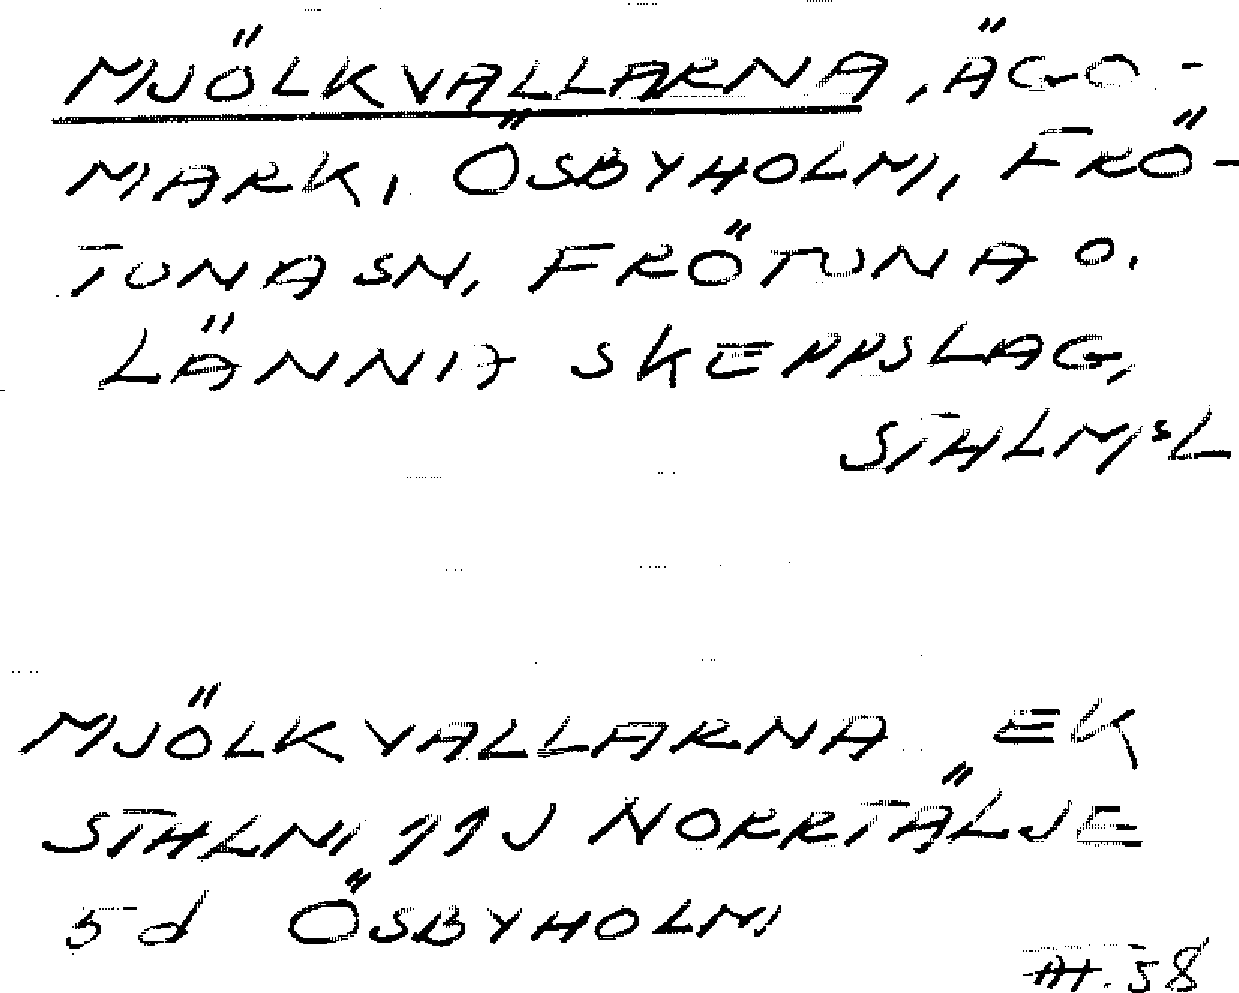 MJÖLKVALLARNA, ÄGO-
MARK, ÖSBYHOLM, FRÖ-
TUNA SN, FRÖTUNA O.
LÄNNA SKEPPSLAG,
STHLMSL
MJÖLKVALLARNA EK
STHLM 11J NORRTÄLJE
5d ÖSBYHOLM
58